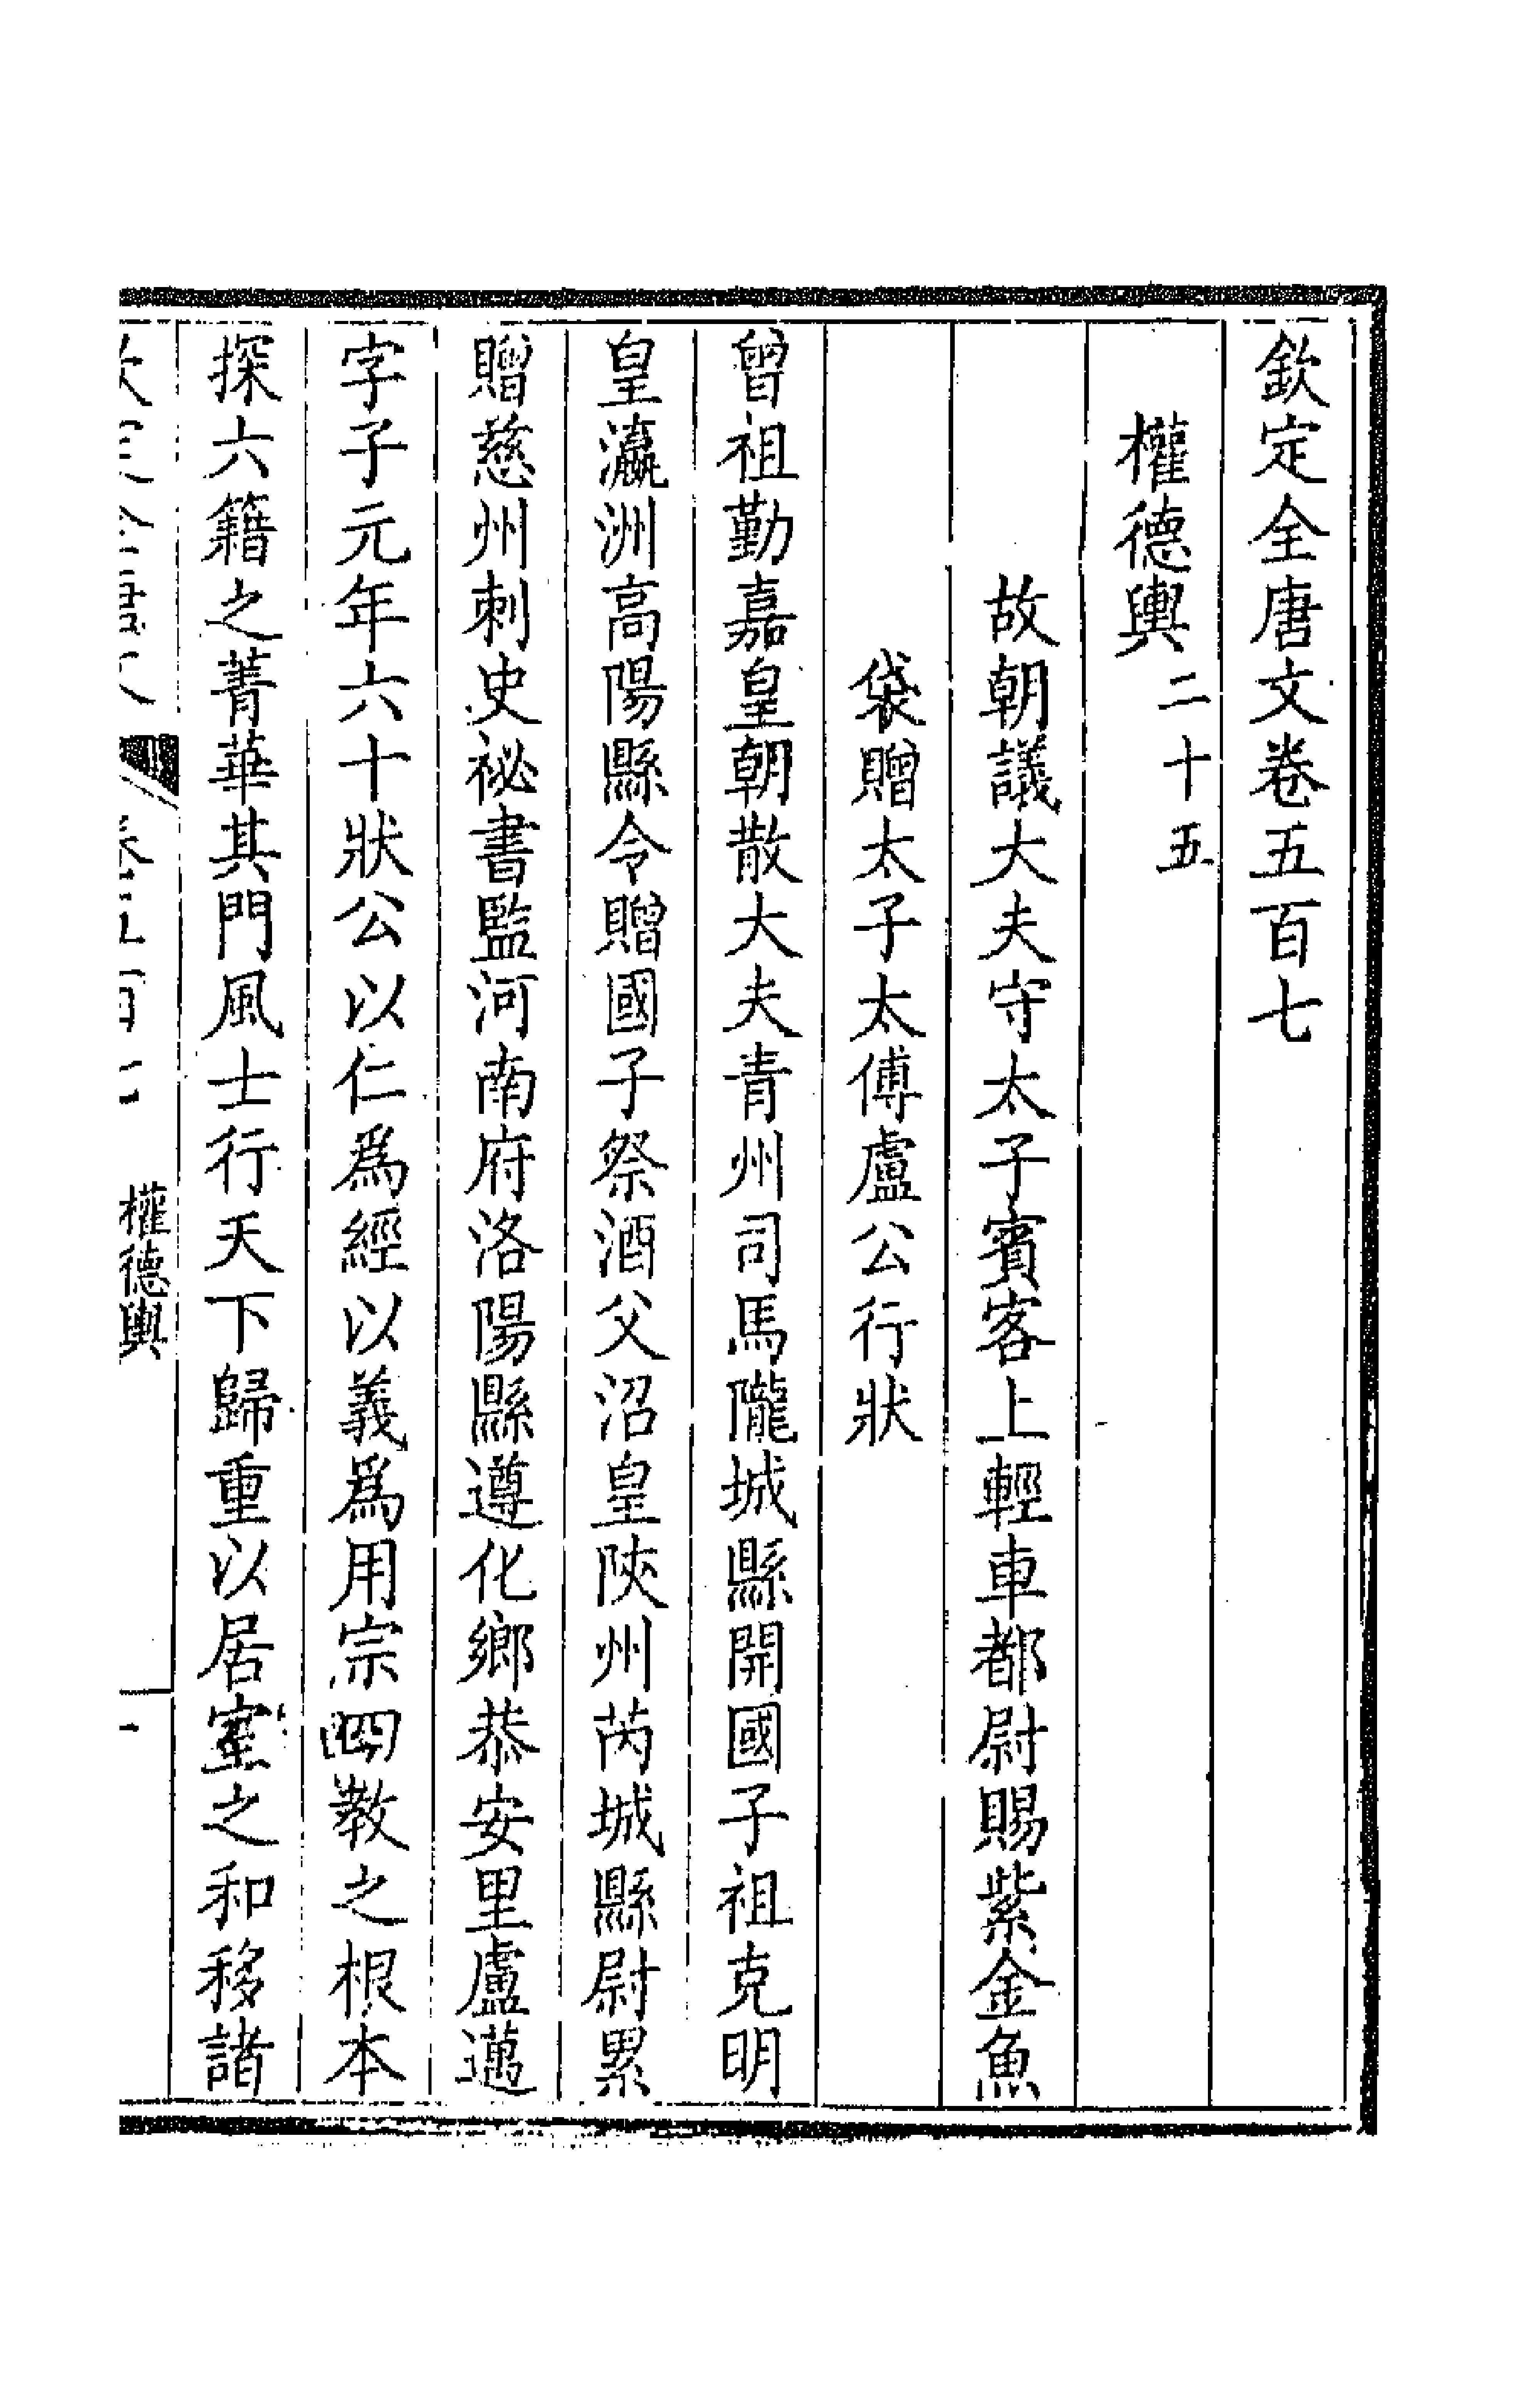 欽定全唐文卷五百七
權德輿二十五
故朝議大夫守太子賓客上輕車都尉賜紫金魚
袋贈太子太傅盧公行狀
曾祖勤嘉皇朝散大夫青州司馬隴城縣開國子祖克明
皇瀛洲高陽縣令贈國子祭酒父沼皇陝州芮城縣尉累
贈慈州刺史祕書監河南府洛陽縣遵化鄉恭安里盧邁
字子元年六十狀公以仁爲經以義爲用宗四教之根本
探六籍之菁華其門風士行天下歸重以居室之和移諸
權德輿